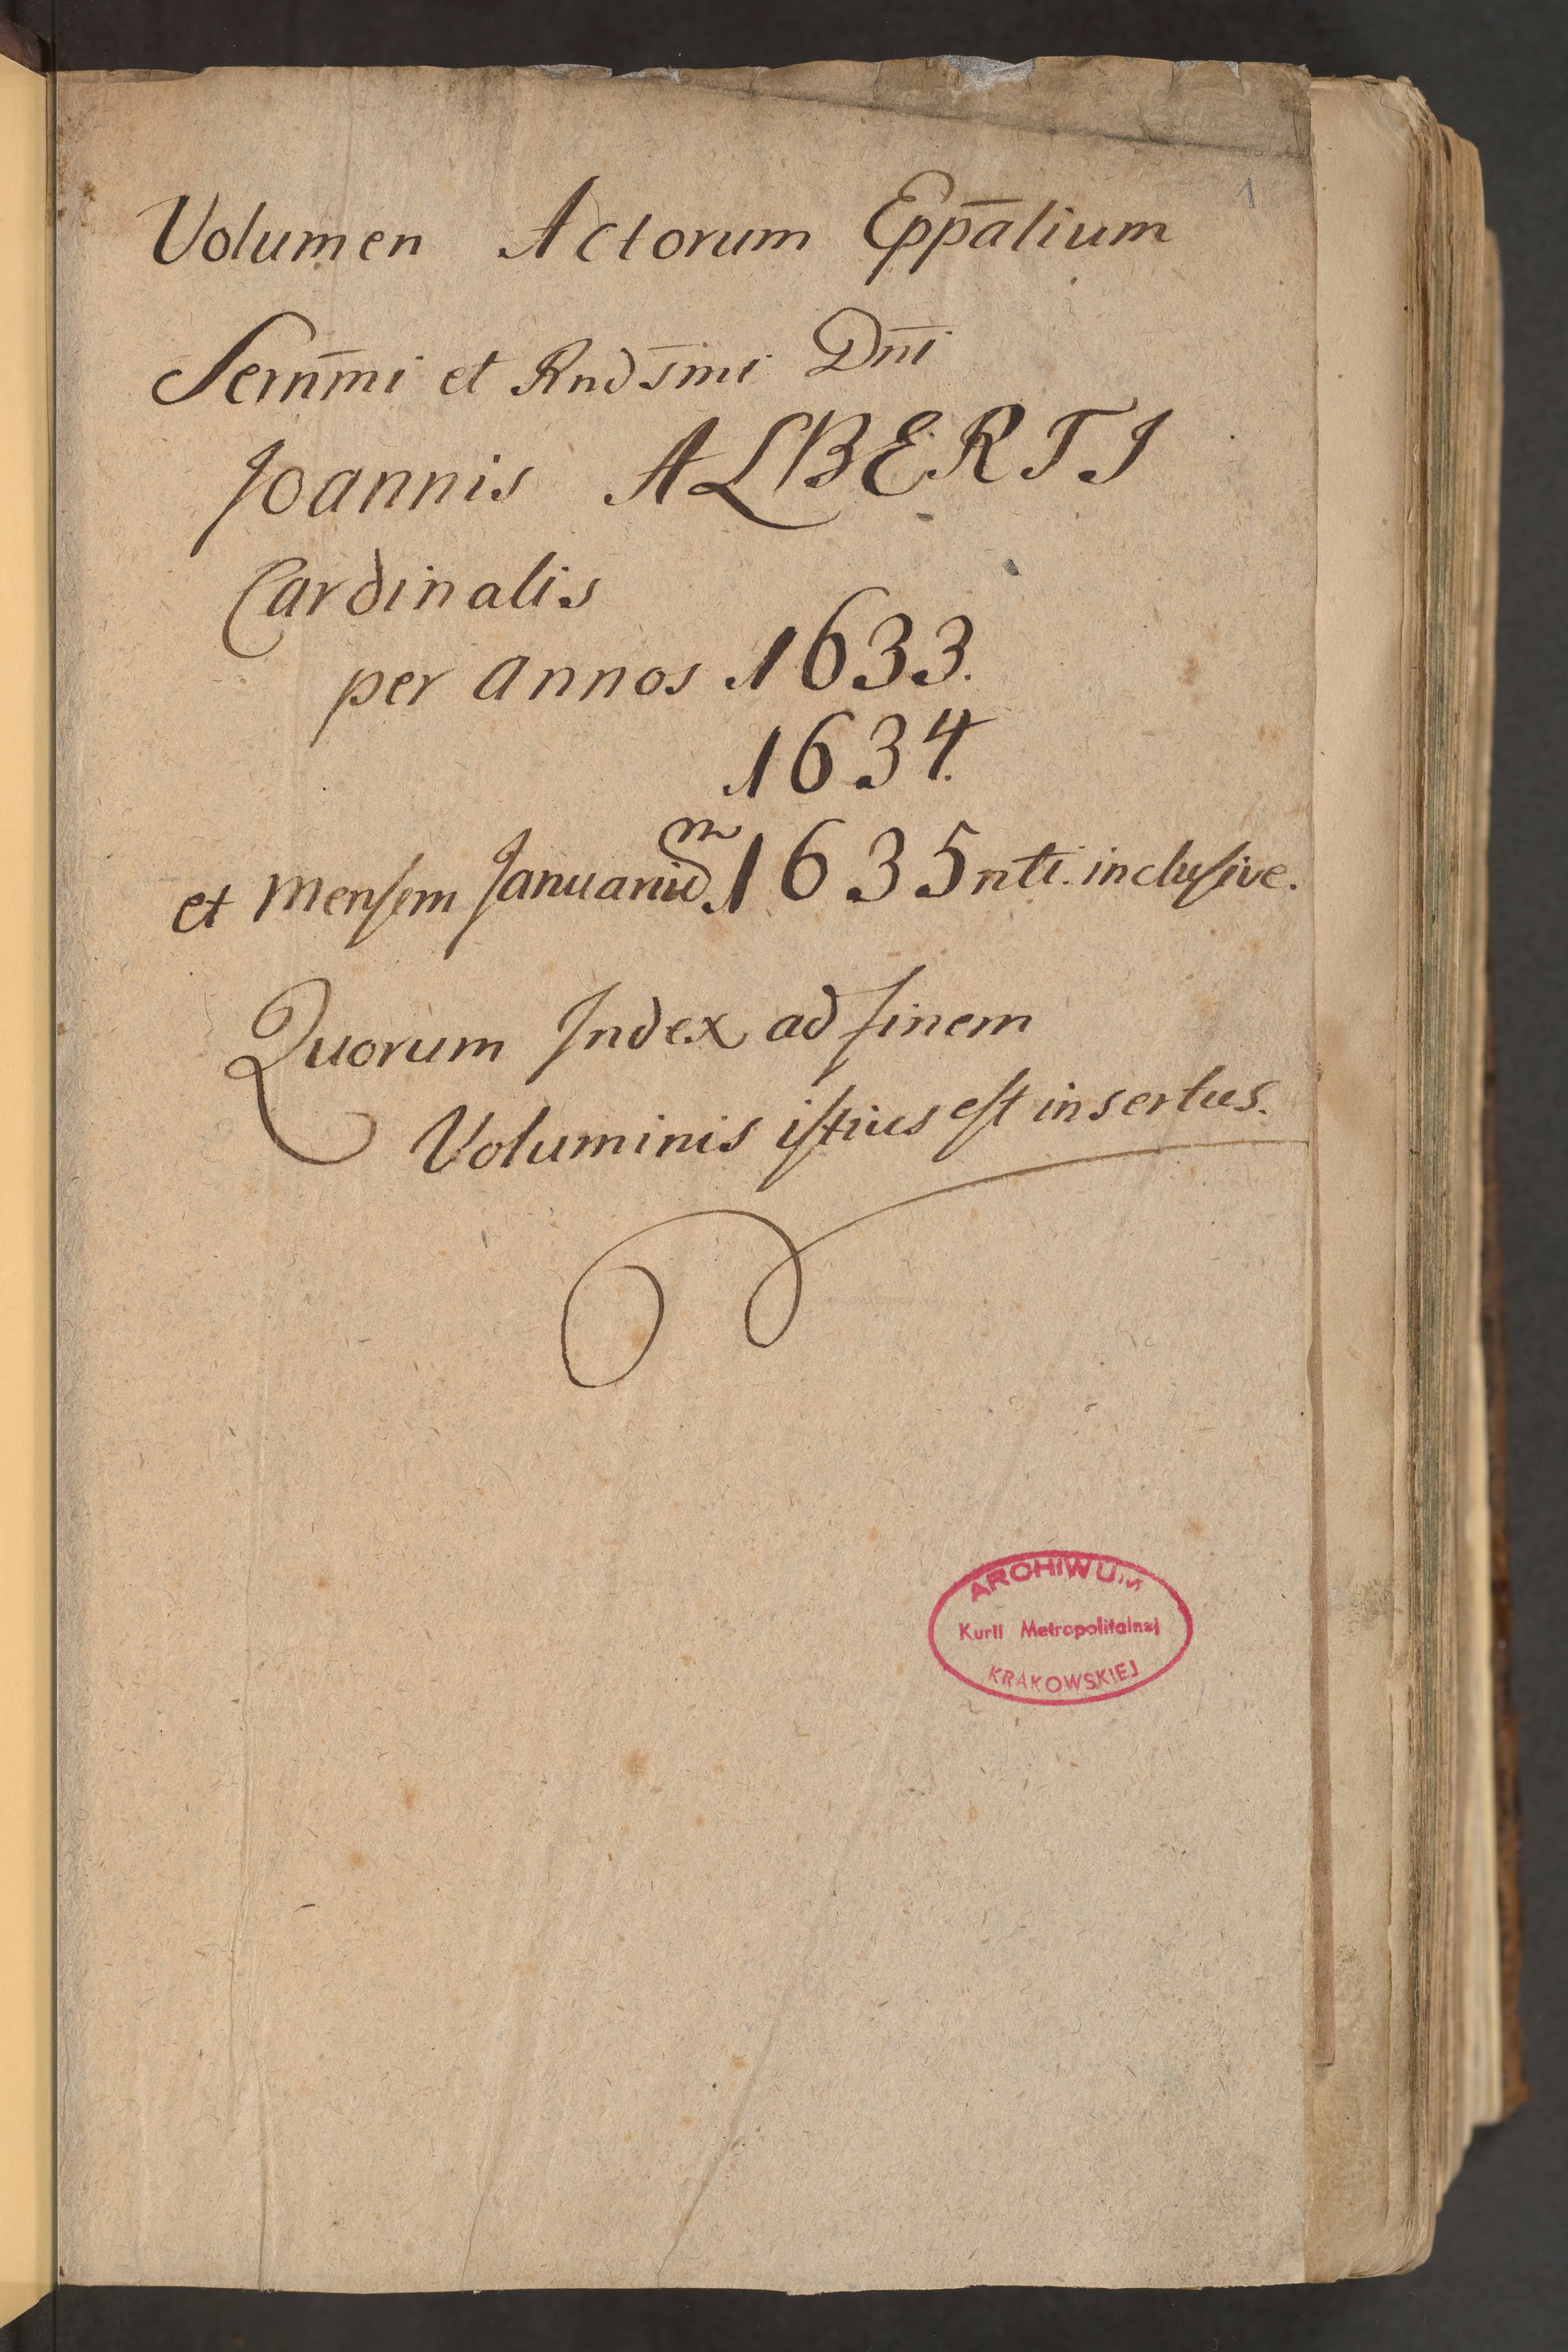 1
Volumen Actorum Epp̄alium
Sern̄mi et Rnds̄mi Dn̄i
Joannis ALBERTI
Cardinalis
per annos 1633.
1634.
et Mensem Januariū m 1635 nti. inclusive.
Quorum Index ad finem
Voluminis istius est insertus.
ARCHIWUM
Kurii Metropolitalnej
KRAKOWSKIEJ